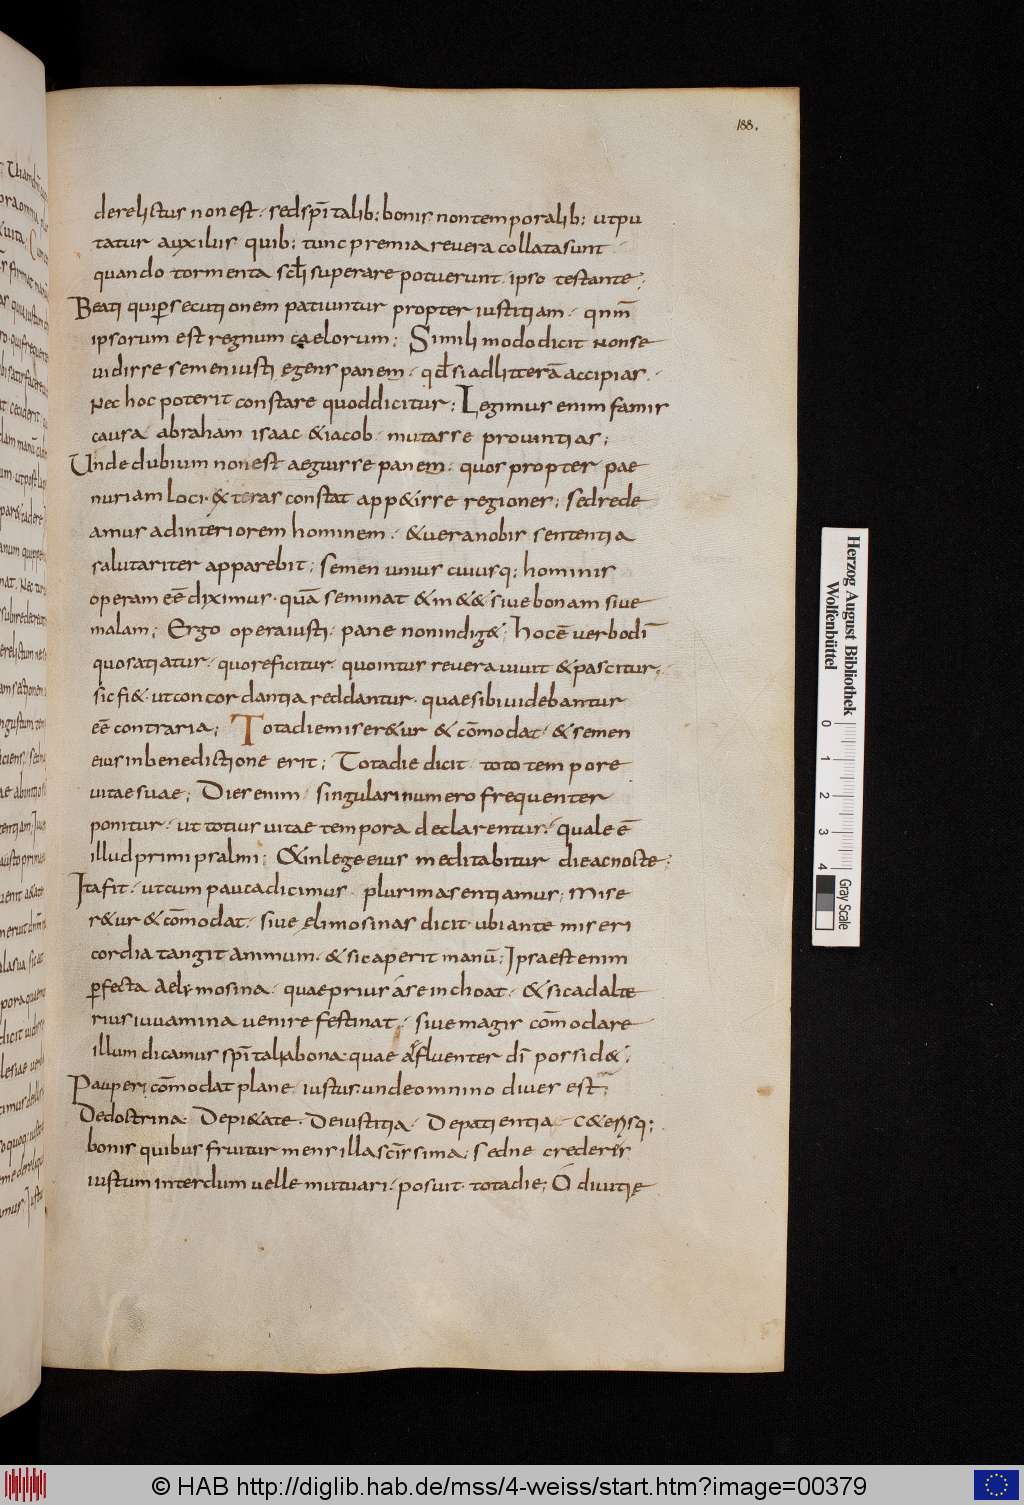 188.
derelictus non est · sed spi͞talib; bonis non temporalib; ut pu
tatur auxiliis quib; tunc premia revera collata sunt ·
quando tormenta sc̄li superare potuerunt · ipso testante;
Beati qui persecutionem patiuntur propter iustitiam · qnm̄
ipsorum est regnum caelorum; Simili modo dicit Non se
vidisse semen iusti egens panem · qd̄ si ad litterā accipias ·
Nec hoc poterit constare quod dicitur; Legimus enim famis
causa abraham isaac & iacob · mutasse provintias;
Unde dubium non est aeguisse panem · quos propter pae
nuriam loci · & teras constat app&isse regiones; sed rede
amus ad interiorem hominem · & vera nobis sententia
salutariter apparebit; semen unius cuiusq; hominis
operam eē diximus · quā seminat & in&& sive bonam sive
malam; Ergo opera iusti · pane non indig&; hoc ē verbo dī
quo satiatur · quo reficitur · quo intus revera vivit & pascitur;
sic fi& · ut concordantia reddantur · quae sibi videbantur
eē contraria; Tota die miser&ur & cōmodat · & semen
eius in benedictione erit; Tota die dicit · toto tempore
vitae suae; Dies enim · singulari numero frequenter
ponitur · ut totius vitae tempora declarentur · quale ē
illud primi psalmi; & in lege eius meditabitur die ac nocte;
Ita fit · ut cum pauca dicimus · plurima sentiamus; Mise
r&ur & cōmodat · sive elimosinas dicit · ubi ante miseri
cordia tangit animum · & sic aperit manū; Ipsa est enim
perfecta aelymosina · quae prius a se inchoat · & sic ad alte
rius iuvamina venire festinat · sive magis cōmodare
illum dicamus spi͞talia bona · quae affluenter dī possid&;
Pauperi cōmodat plane iustus · unde omnino dives est;
De doctrina · De pi&ate · De iustitia · De patientia · c&erisq;
bonis quibus fruitur mens illa sc̄issima; sed ne crederis
iustum interdum velle mutuari · posuit · tota die; O divitie
Herzog August Bibliothek
Wolfenbüttel
0 1 2 3 4
Gray Scale
© HAB http://diglib.hab.de/mss/4-weiss/start.htm?image=00379